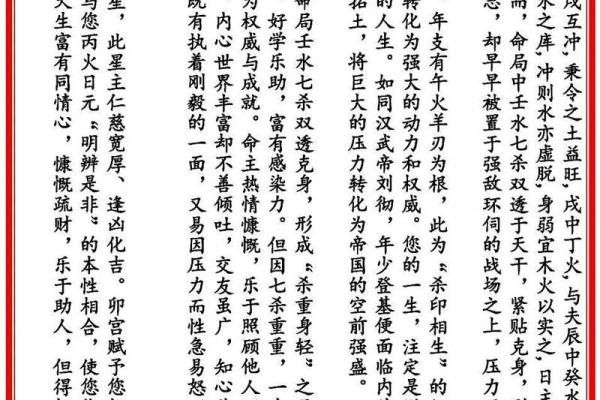 戌互冲，乘令之土益旺，戌中丁火，与夫辰中癸水
水之库，冲则水亦虚脱，身弱宜木火以实之，日主
而，命局中壬水七杀双透于天干，紧贴克身，
忌，却早早被置于强敌环伺的战场之上，压力
年支有午火羊刃为根，此为“杀印相生”的
转化为强大的动力和权威。您的一生，注定是
的人生。如同汉武帝刘彻，年少登基便面临内
拓土，将巨大的压力转化为帝国的空前强盛。
命局壬水七杀双透克身，形成“杀重身轻”之
好学乐助，富有感染力。但因七杀重重，一
为权威与成就。命主热情慷慨，乐于照顾他人
，内心世界丰富却不善倾吐，交友虽广，知心
既有执着刚毅的一面，又易因压力而性急易怒
星，此星主仁慈宽厚、逢凶化吉。卯宫赋予您
与您丙火日元“明辨是非”的本性相合，使您
天生富有同情心，慷慨疏财，乐于助人，但得